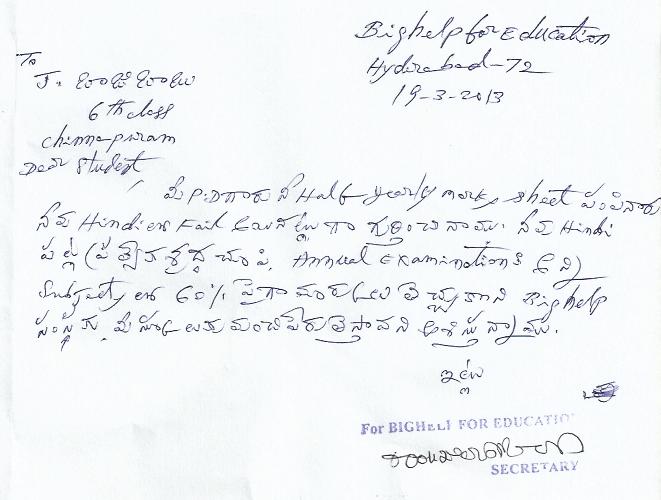 Bighelp for Education
Hyderabad-72
19-3-2013
To
J. బాజి బాబు
6th class
chinnapuram
Dear Student
మీ P.D గారు నీ Half yearly marks sheet పంపినారు
నీవు Hindi లో Fail అయినట్లుగా గుర్తించినాము. నీవు Hindi
పట్ల ప్రత్యేక శ్రద్ధ చూపి, Annual Examination కి అన్ని
Subjects లో 60% పైగా మార్కులు తెచ్చుకొని Bighelp
సంస్థకు, మీ స్కూలుకు మంచి పేరు తెస్తావని ఆశిస్తున్నాము.
ఇట్లు
For BIGHELP FOR EDUCATION
SECRETARY